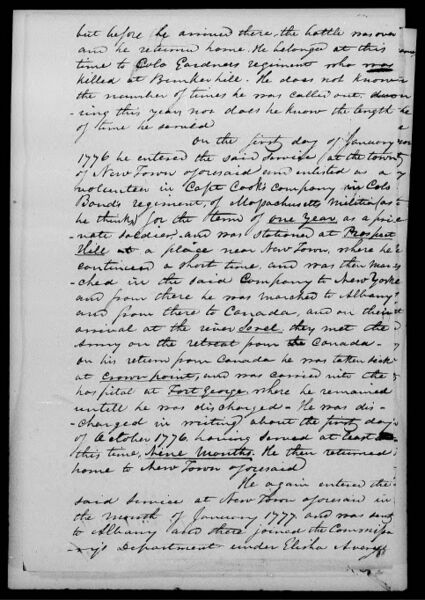 but before he arrived there, the battle was over
and he returned home. He belonged at this
time to Colo Gardners regiment who was
killed at Bunker hill. He does not know
the number of times he was called out. du-
ring this year, nor does he know the length
of time he served
On the first day of January
1776 he entered the said service (at the town
of New Town aforesaid and enlisted as a
volunteer in Capt Cooks company in Cols
Bonds regiment, of Massachusetts Militia (as
he thinks) for the term of one year as a pri-
vate soldier, and was stationed at Prospect
Hill at a place near New Town, where he
continued a short time, and was then mar-
ched in the said Company to New York
and from there he was marched to Albany
and from there to Canada, and on their
arrival at the river Sorel, they met the
Army on the retreat from Canada-
on his return from Canada he was taken sick
at Crown point, and was carried into the
hospital at Fort George, where he remained
untill he was discharged- He was dis-
charged in writing about the first day
of October 1776. having served at least
this time, Nine Months. He then returned
home to New Town aforesaid
He again entered the
said service at New Town aforesaid in
the month of January 1777 and was sent
to Albany and there joined the Commissa
-ry's Department under Elisha Avery